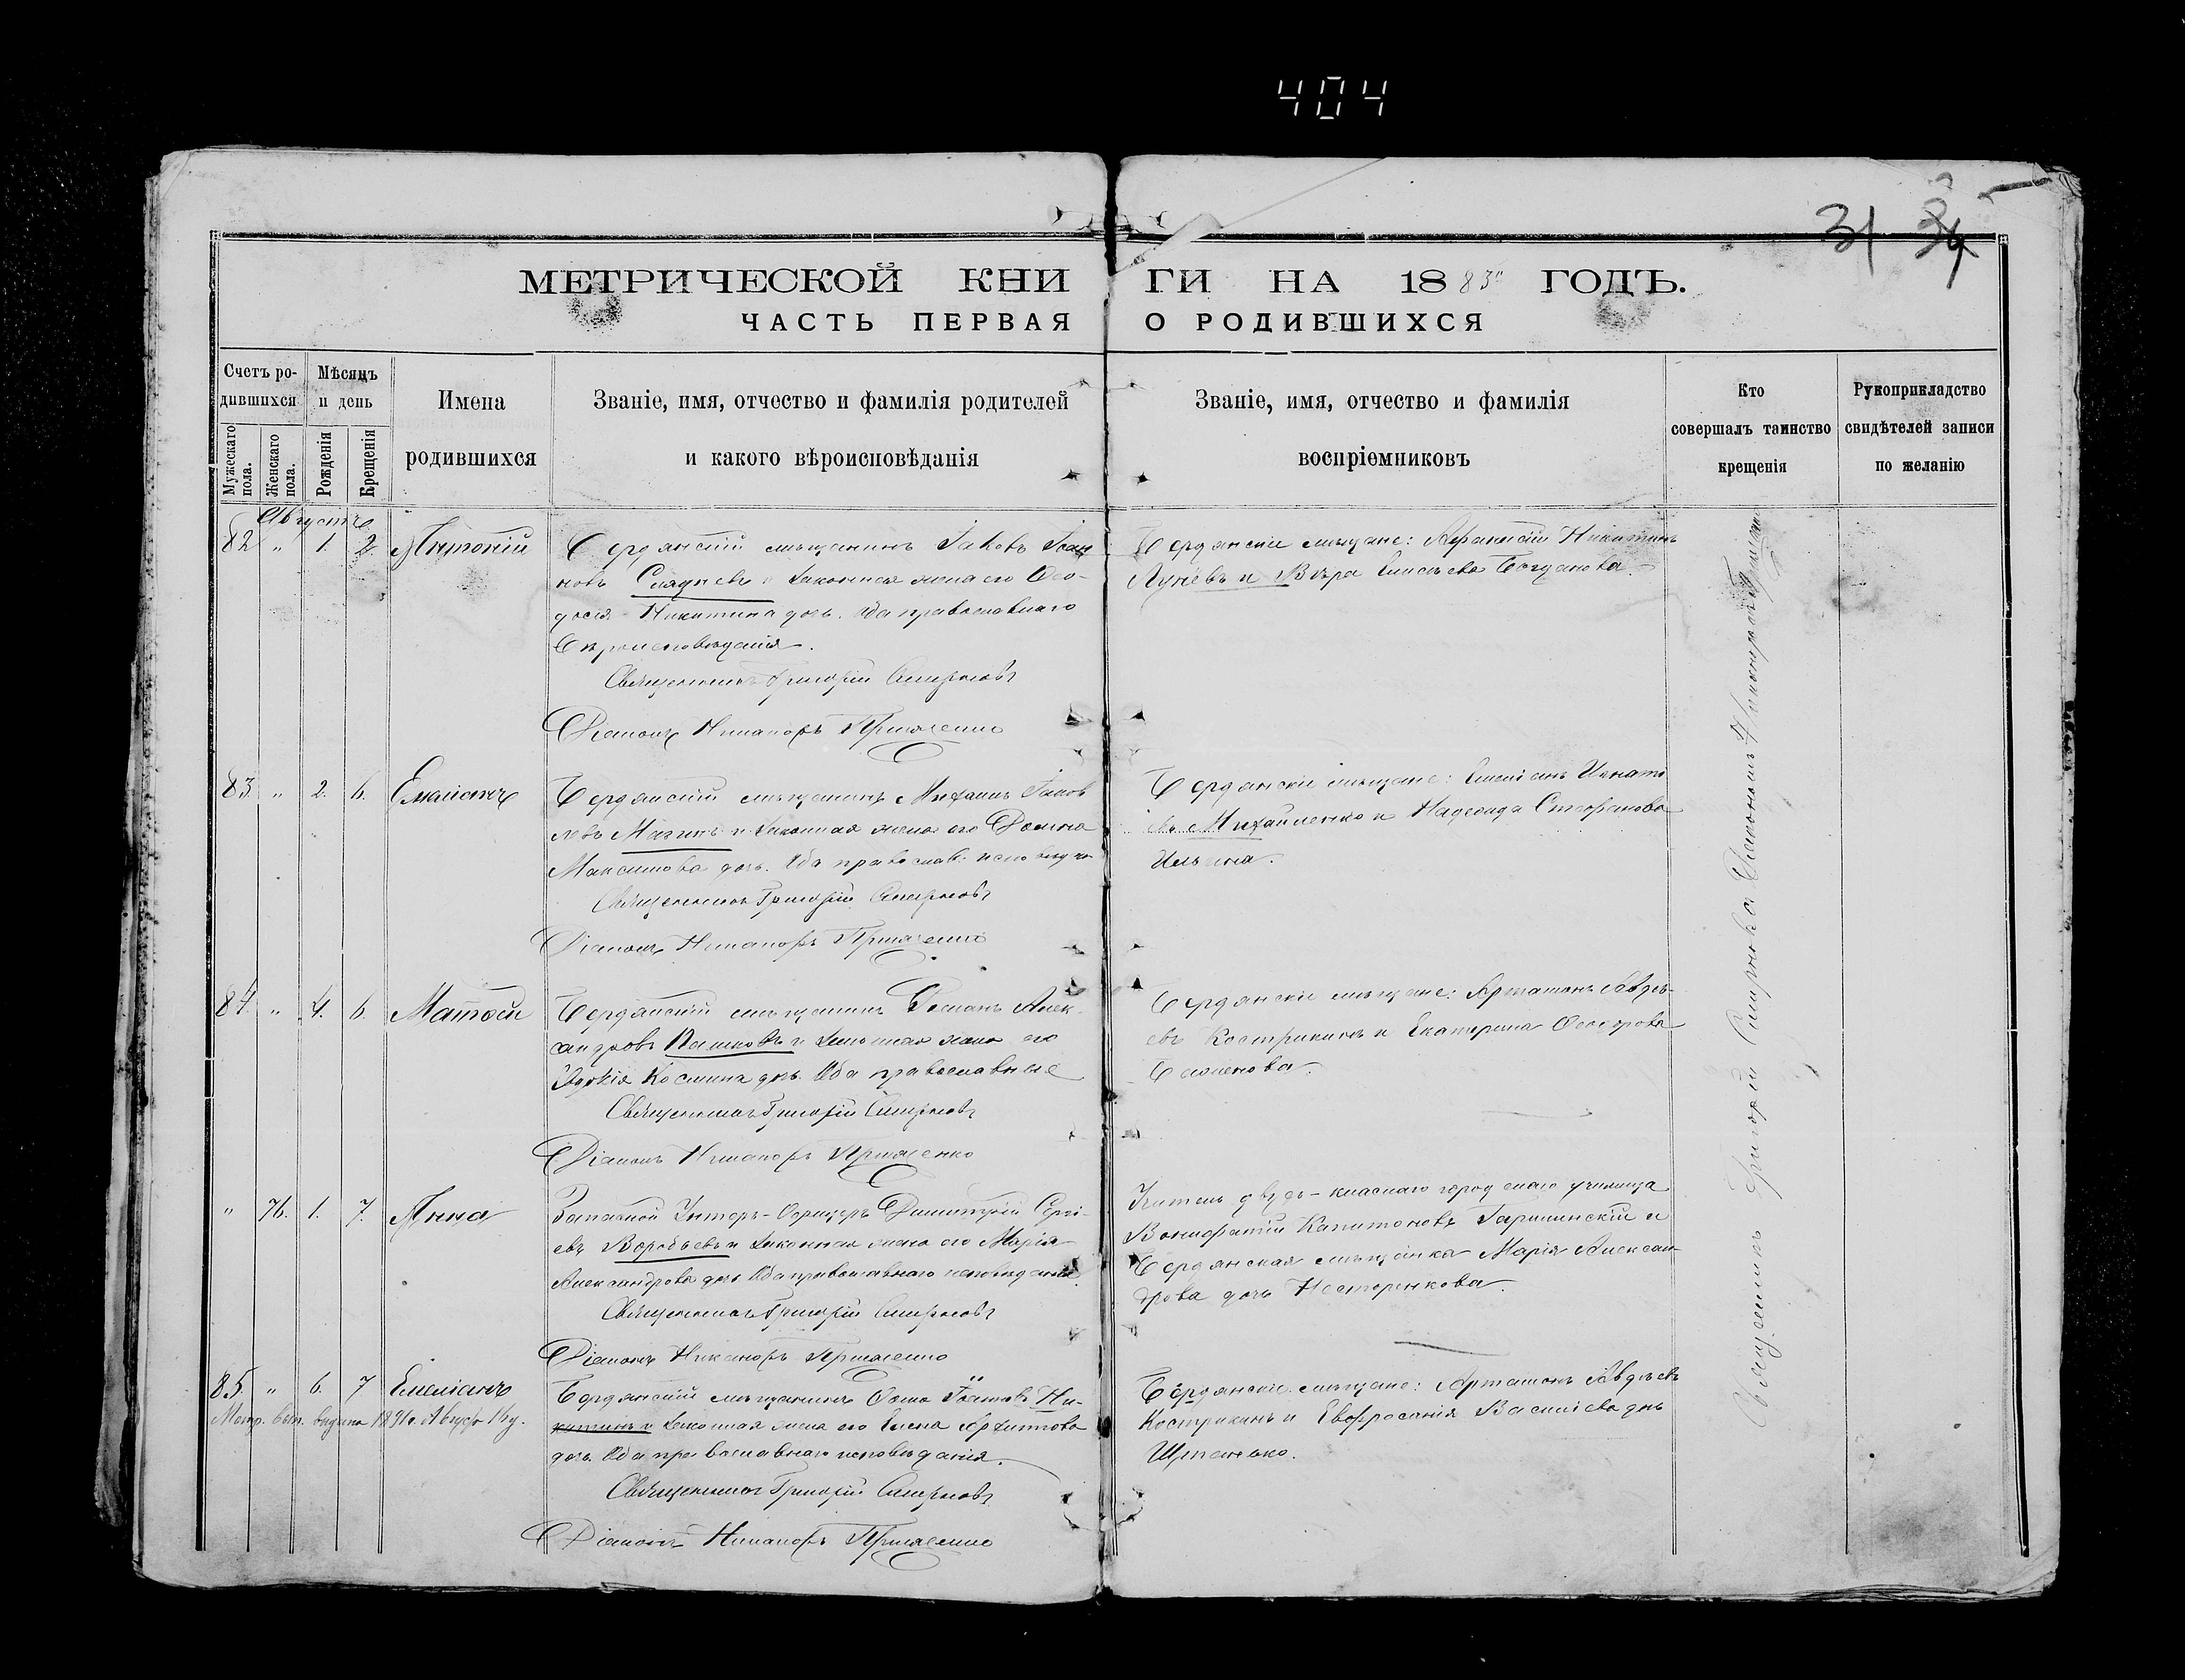 404
31 34
МЕТРИЧЕСКОЙ КНИГИ НА 1883й ГОДЪ.
ЧАСТЬ ПЕРВАЯ О РОДИВШИХСЯ
Счетъ родившихся
Мужескаго пола.
Женскаго пола.
Мѣсяцъ и день
Рожденія
Крещенія
Имена родившихся
Званіе, имя, отчество и фамилія родителей
и какого вѣроисповѣданія
Званіе, имя, отчество и фамилія
воспріемниковъ
Кто
совершалъ таинство
крещенія
Рукоприкладство
свидѣтелей записи
по желанію
Августъ
82 " 1. 2. Антоній
Бердянскій мѣщанинъ Іаковъ Іоан
новъ и законная жена его Ѳео-
досія Никитина дочь. Оба православнаго
вѣроисповѣданія.
Священникъ Григорій Смирновъ
Діаконъ Никаноръ
Бердянскіе мѣщане: Афанасій Никитинъ
Лунёвъ и Вѣра Елисѣева Богданова.
83. " 2. 6. Емеліанъ
Бердянскій мѣщанинъ Михаилъ Іаков
левъ Магинъ и законная жена его Домна
Максимова дочь. Оба православ. исповѣдан.
Священникъ Григорій Смирновъ
Діаконъ Никаноръ
Бердянскіе мѣщане: Емеліанъ Игнать
евъ Михайленко и Надежда Стефанова
Ильина.
84. " 4. 6. Матѳей
Бердянскій мѣщанинъ Романъ Алек-
сандровъ Пашковъ и законная жена его
Евдокія Космина дочь. Оба православные
Священникъ Григорій Смирновъ
Діаконъ Никаноръ
Бердянскіе мѣщане: Артамонъ Авдѣ-
евъ Кострикинъ и Екатерина Ѳеодорова
" 76. 1. 7. Анна
Запасной Унтеръ-Офицеръ Димитрій Сергі-
евъ Воробьевъ и законная жена его Марія
Александрова дочь Оба православнаго исповѣданія.
Священникъ Григорій Смирновъ
Діаконъ Никаноръ
Учитель двухъ-класнаго городскаго училища
Вонифатій Капитоновъ и
Бердянская мѣщанка Марія Алексан-
дрова дочь Несторенкова.
85. " 6. 7 Емеліанъ
Метр. вып. выдана 1891 г. Август
Бердянскій мѣщанинъ Ѳома Ни-
китинъ и законная жена его Елена Архиппова
дочь. Оба православнаго исповѣданія.
Священникъ Григорій Смирновъ
Діаконъ Никаноръ
Бердянскіе мѣщане: Артамонъ Авдѣевъ
Кострикинъ и Евфросинія Василіева дочь
Священникъ Григорій Смирновъ съ Діакономъ Никаноромъ